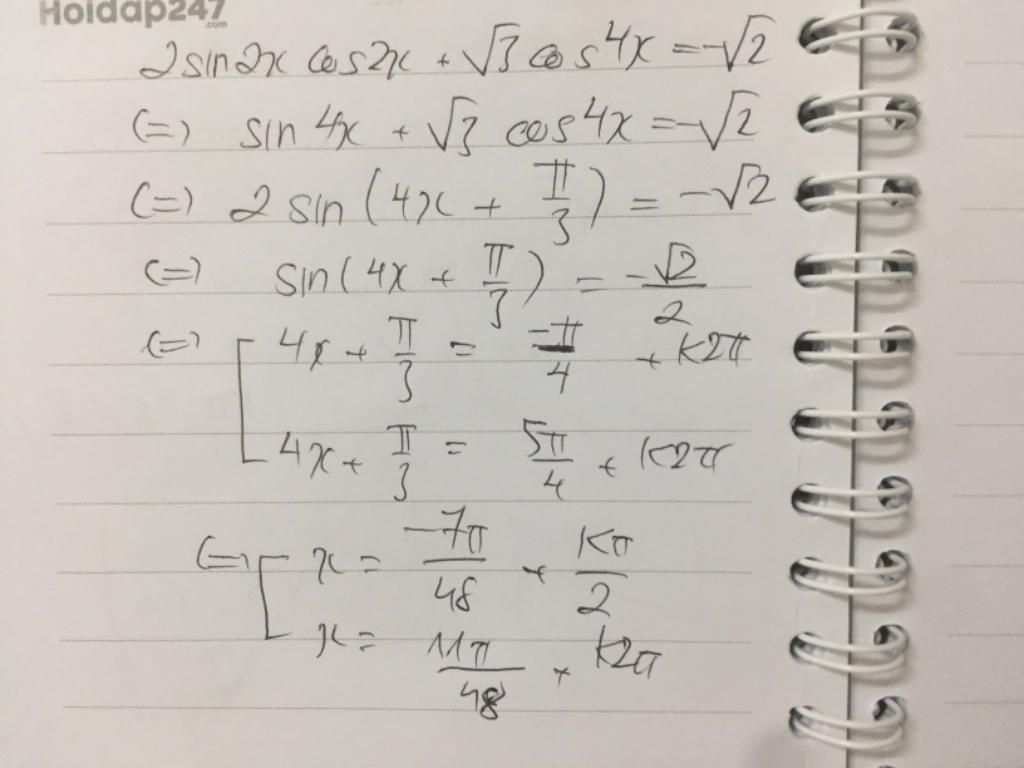 Hoidap247
.com
2sin2x cos2x + √3 cos4x = -√2
(=) sin4x + √3 cos4x = -√2
(=) 2 sin (4x + π/3) = -√2
(=) sin(4x + π/3) = -√2/2
(=) [ 4x + π/3 = -π/4 + k2π
4x + π/3 = 5π/4 + k2π
(=) [ x = -7π/48 + kπ/2
x = 11π/48 + k2π